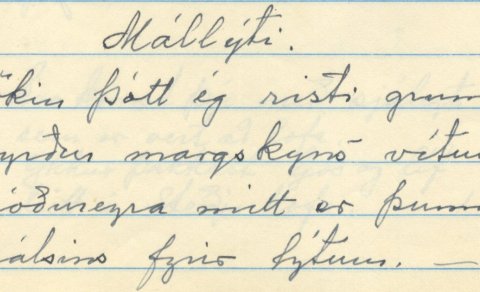 Mállýti.
ökin þótt ég risti grun
yrður margskyns vítum
óðureyra mitt er þunn
álsins fyrir lýtum. —